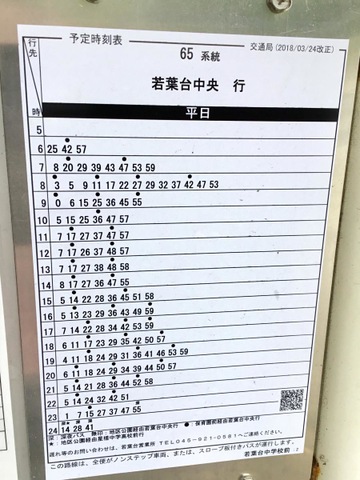 行先
予定時刻表
交通局(2018/03/24改正)
65 系統
若葉台中央 行
時
平日
5
6 25 42 57
7 8 20 29 39 43 47 53 59
8 3 5 9 11 17 22 27 29 32 37 42 47 53
9 0 6 15 25 36 45 55
10 5 15 25 36 47 57
11 7 17 27 37 47 57
12 7 17 26 37 48 57
13 7 17 27 38 48 58
14 8 17 27 36 47 55
15 5 14 22 28 36 45 51 58
16 5 13 23 29 36 43 49 59
17 7 14 22 28 34 42 53 59
18 6 11 17 23 29 35 42 50 57
19 4 11 18 24 29 31 36 41 46 53 59
20 6 11 18 24 30 34 39 44 50 57
21 5 14 21 28 36 44 52 58
22 5 14 24 32 42 51
23 1 7 15 27 37 47 55
24 14 28 41
深：深夜バス 無印：地区公園経由若葉台中央行 ●：保育園前経由若葉台中央行
★：地区公園経由星槎中学高校前行
遅れ等のお問い合わせは、若葉台営業所 TEL045-921-0561へご連絡ください。
この路線は、全便がノンステップ車両、または、スロープ板付きバスが運行します。
若葉台中学校前